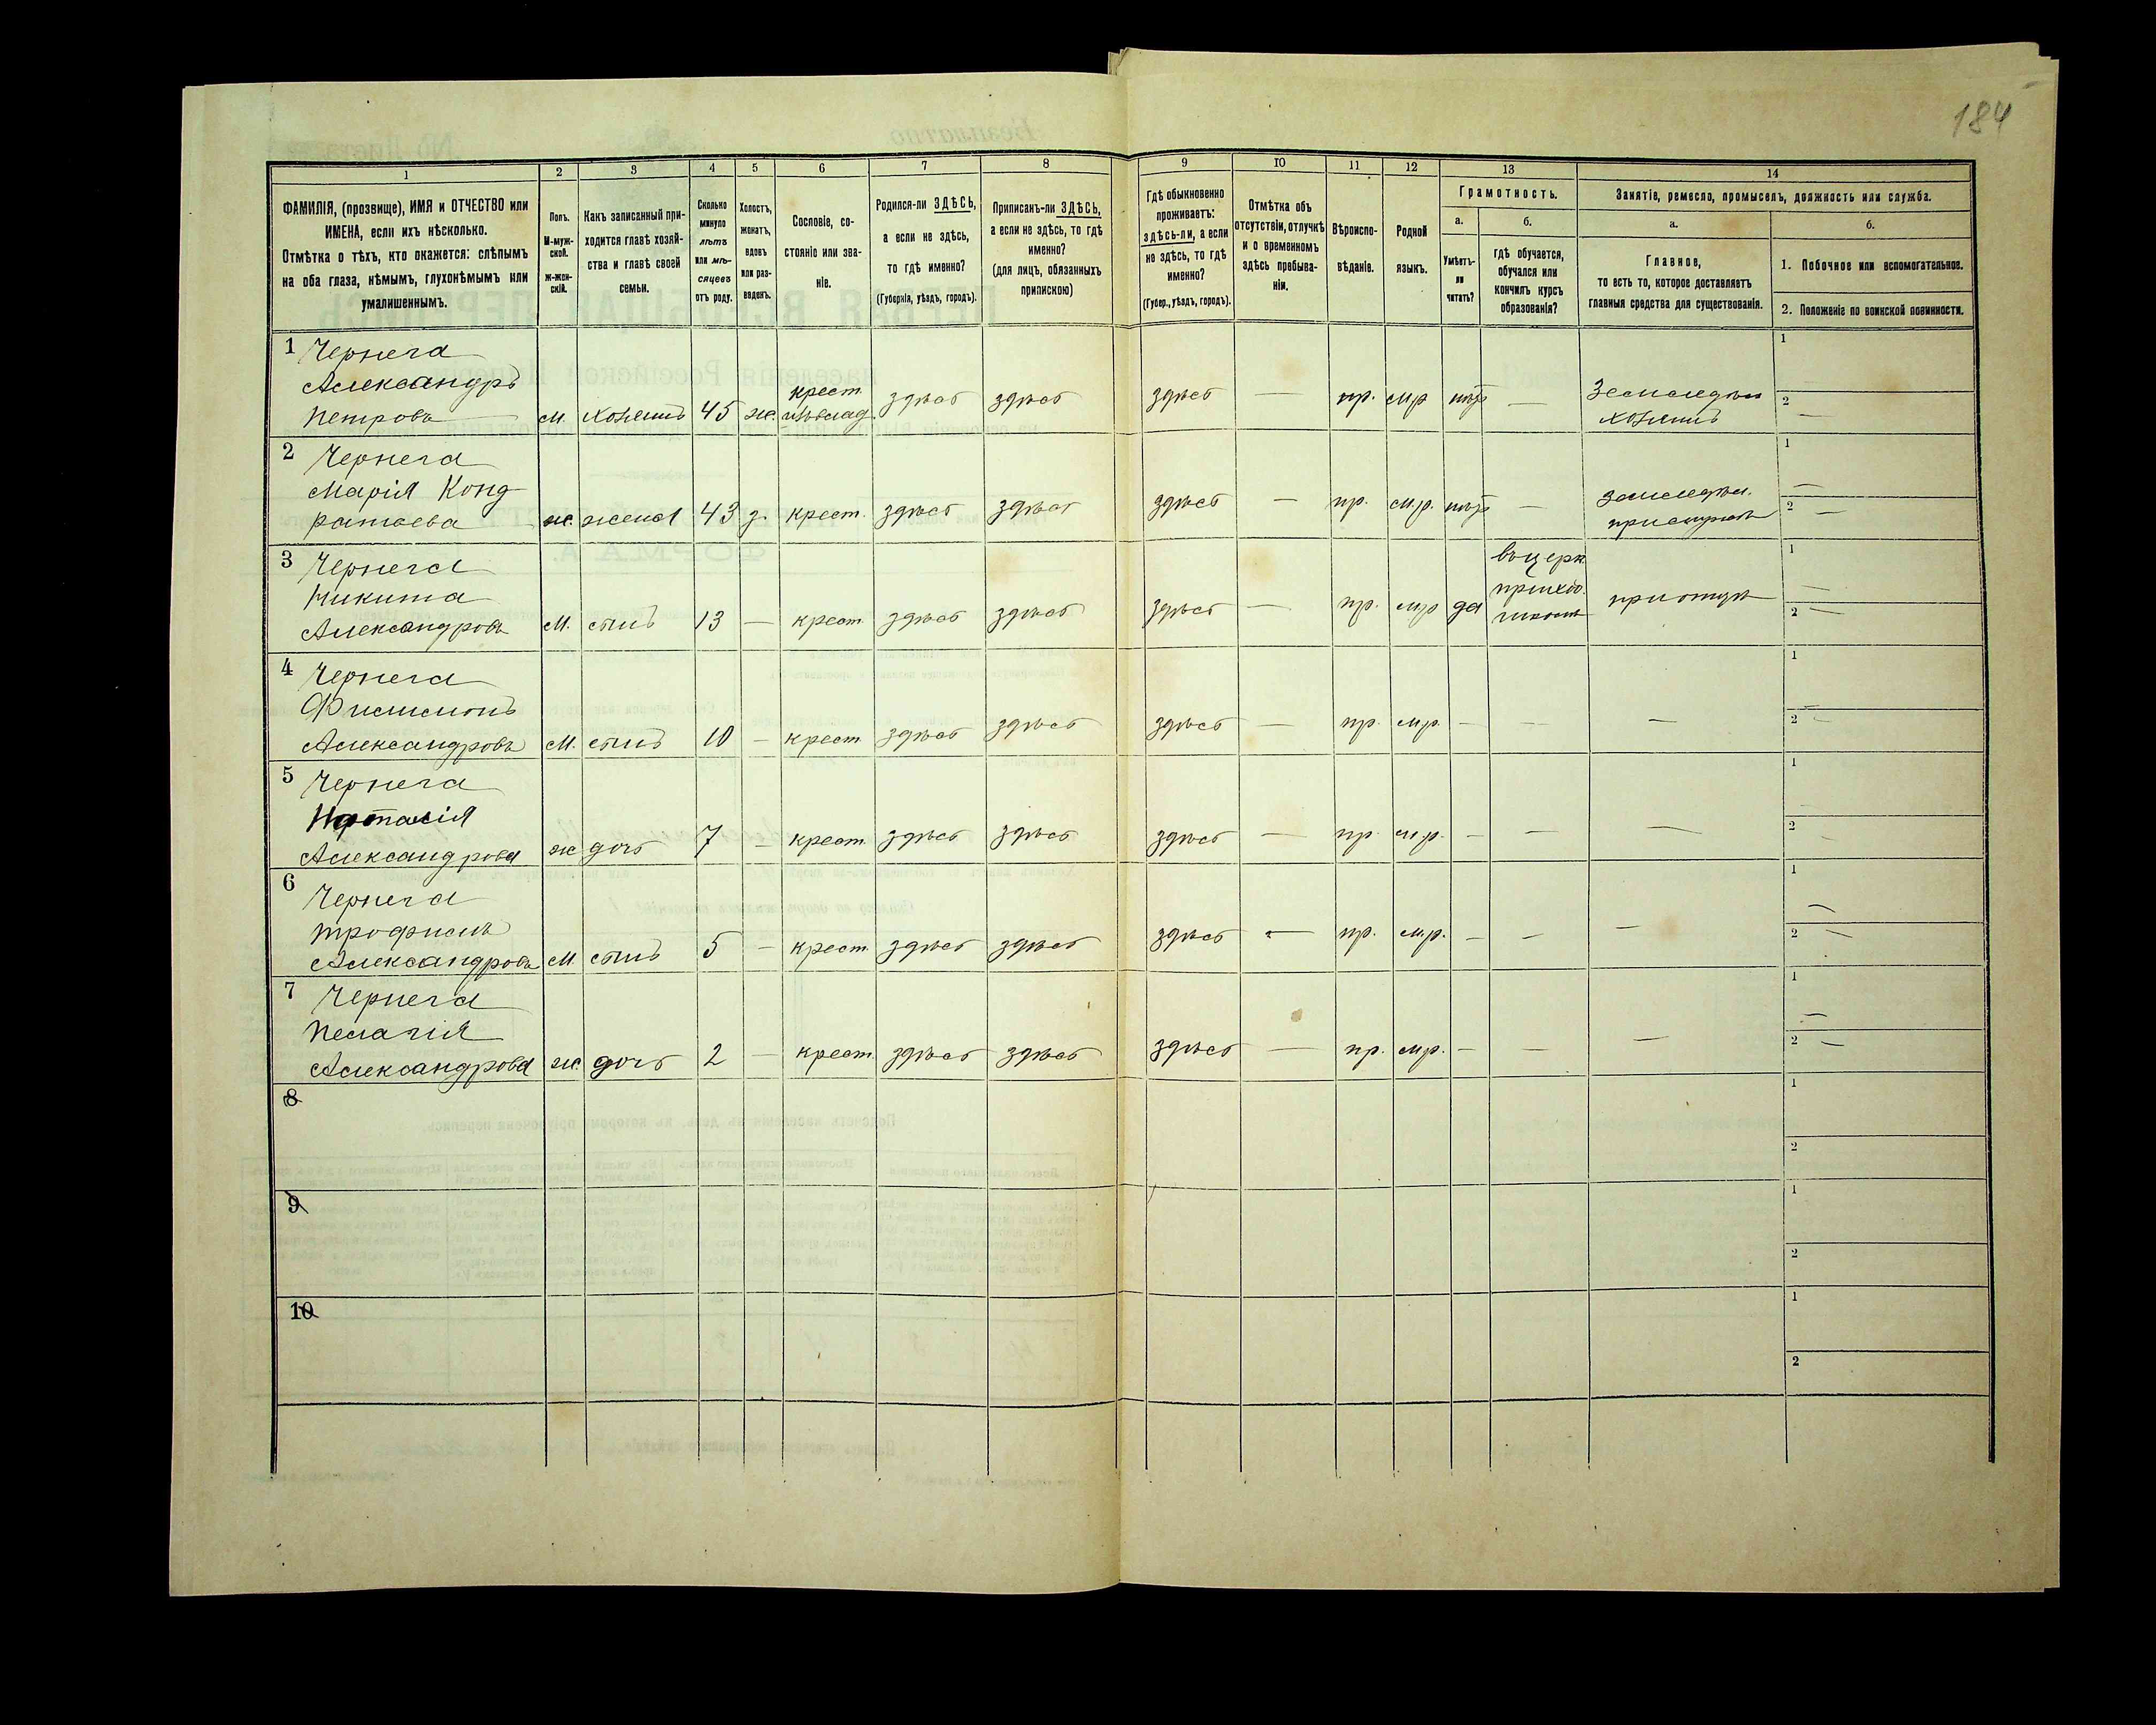 184
1
2
3
4
5
6
7
8
9
10
11
12
13
14
ФАМИЛІЯ, (прозвище), ИМЯ и ОТЧЕСТВО или
ИМЕНА, если ихъ нѣсколько.
Отмѣтка о тѣхъ, кто окажется: слѣпымъ
на оба глаза, нѣмымъ, глухонѣмымъ или
умалишеннымъ.
Полъ.
М-муж-
ской.
Ж-жен-
скій.
Какъ записанный при-
ходится главѣ хозяй-
ства и главѣ своей
семьи.
Сколько
минуло
лѣтъ
или мѣ-
сяцевъ
отъ роду.
Холостъ,
женатъ,
вдовъ
или раз-
веденъ.
Сословіе, со-
стояніе или зва-
ніе.
Родился-ли ЗДѢСЬ,
а если не здѣсь,
то гдѣ именно?
(Губернія, уѣздъ, городъ).
Приписанъ-ли ЗДѢСЬ,
а если не здѣсь, то гдѣ
именно?
(для лицъ, обязанныхъ
припискою)
Гдѣ обыкновенно
проживаетъ:
здѣсь-ли, а если
не здѣсь, то гдѣ
именно?
(Губер., уѣздъ, городъ).
Отмѣтка объ
отсутствіи, отлучкѣ
и о временномъ
здѣсь пребыва-
ніи.
Вѣроиспо-
вѣданіе.
Родной
языкъ.
Грамотность.
а.
Умѣетъ-
ли
читать?
б.
гдѣ обучается,
обучался или
кончилъ курсъ
образованія?
Занятіе, ремесло, промыселъ, должность или служба.
а.
Главное,
то есть то, которое доставляетъ
главныя средства для существованія.
б.
1. Побочное или вспомогательное.
2. Положеніе по воинской повинности.
1 Чернега
Александръ
Петровъ М. хозяинъ 45 ж. крест. здѣсь здѣсь здѣсь — пр. м.р. нѣтъ — Земледѣл
хозяинъ
1
2 —
2 Чернега
Марія Конд
ратьева ж. жена 43 з. крест. здѣсь здѣсь здѣсь — пр. м.р. нѣтъ — земледѣл.
1 —
2 —
3 Чернега
Никита
Александровъ М. сынъ 13 — крест. здѣсь здѣсь здѣсь — пр. м.р. да въ церк.
приход.
1 —
2 —
4 Чернега
Филимонъ
Александровъ М. сынъ 10 — крест. здѣсь здѣсь здѣсь — пр. м.р. — — —
1 —
2 —
5 Чернега
Наталія
Александрова ж дочь 7 — крест. здѣсь здѣсь здѣсь — пр. м.р. — — —
1 —
2 —
6 Чернега
Трофимъ
Александровъ М. сынъ 5 — крест. здѣсь здѣсь здѣсь — пр. м.р. — — —
1 —
2 —
7 Чернега
Пелагія
Александрова ж. дочь 2 — крест. здѣсь здѣсь здѣсь — пр. м.р. — — —
1 —
2 —
8
1
2
9
1
2
10
1
2